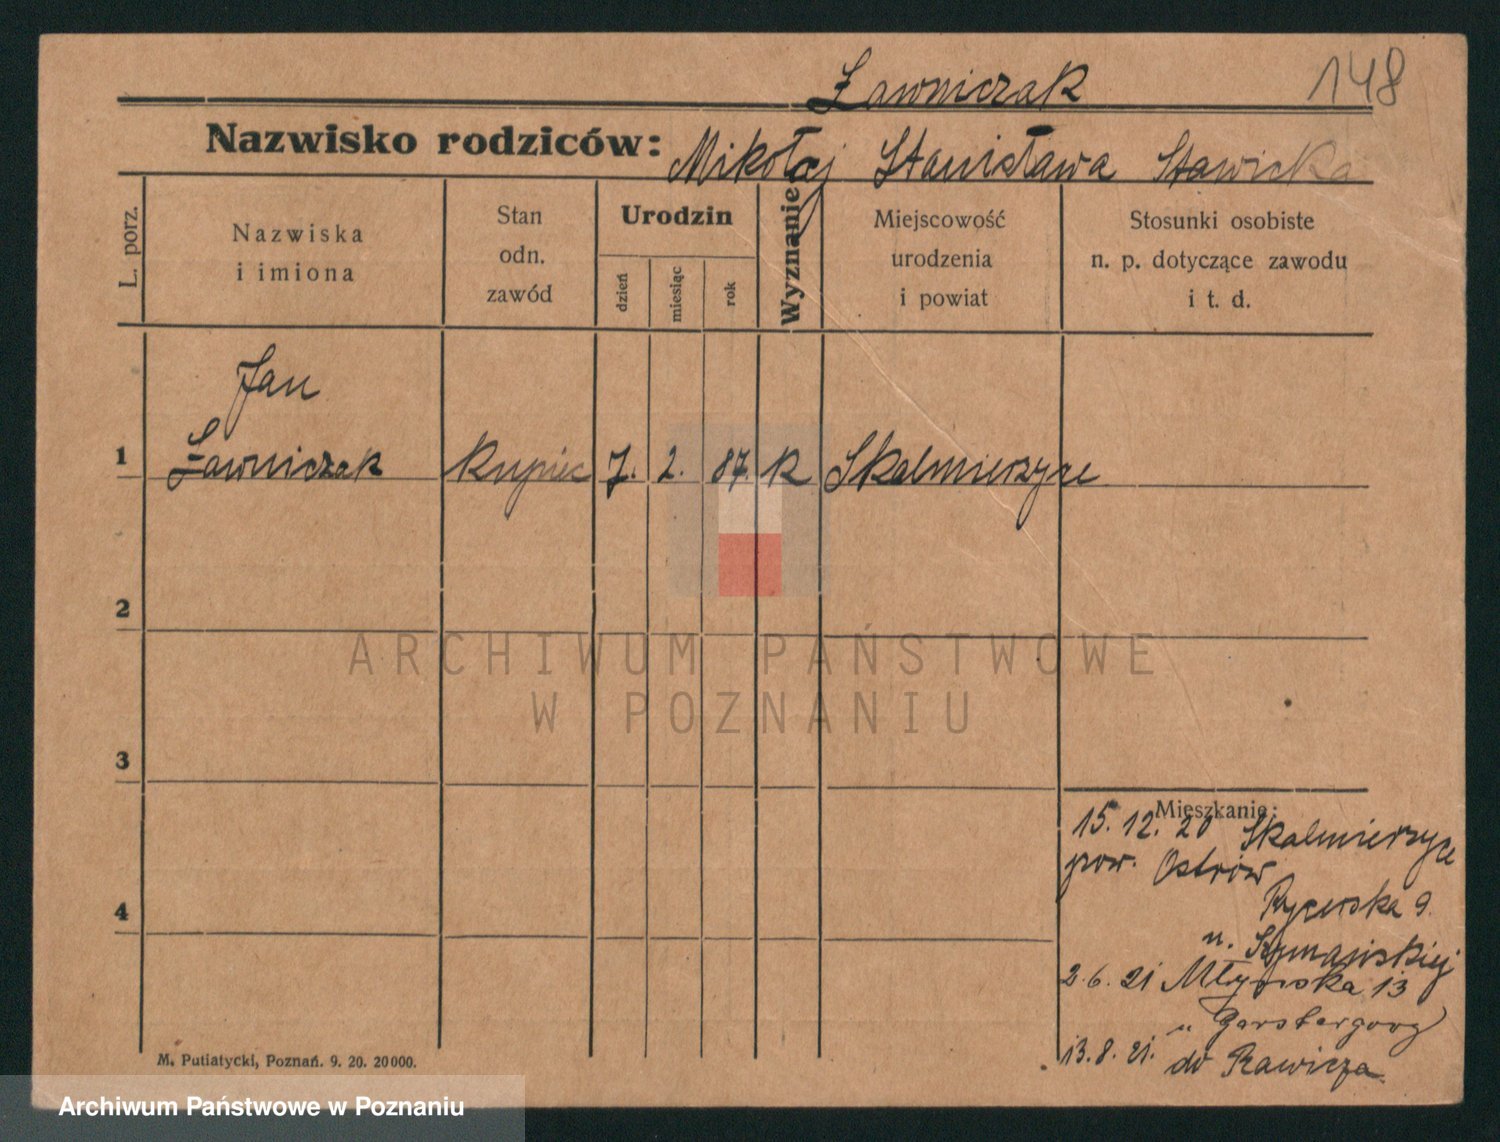 Ławniczak
148
Nazwisko rodziców: Mikołaj Stanisława Stawicka
L. porz.
Nazwiska
i imiona
Stan
odn.
zawód
Urodzin
dzień
miesiąc
rok
Wyznanie
Miejscowość
urodzenia
i powiat
Stosunki osobiste
n. p. dotyczące zawodu
i t. d.
Jan
1 Ławniczak kupiec 7. 2. 87. k Skalmierzyce
2
ARCHIWUM PAŃSTWOWE
W POZNANIU
3
Mieszkanie:
15. 12. 20 Skalmierzyce
pow. Ostrów
Rycerska 9.
4
u. Szymańskiej
2. 6. 21 Młyńska 13
u
13. 8. 21. do Rawicza
M. Putiatycki, Poznań. 9. 20. 20000.
Archiwum Państwowe w Poznaniu